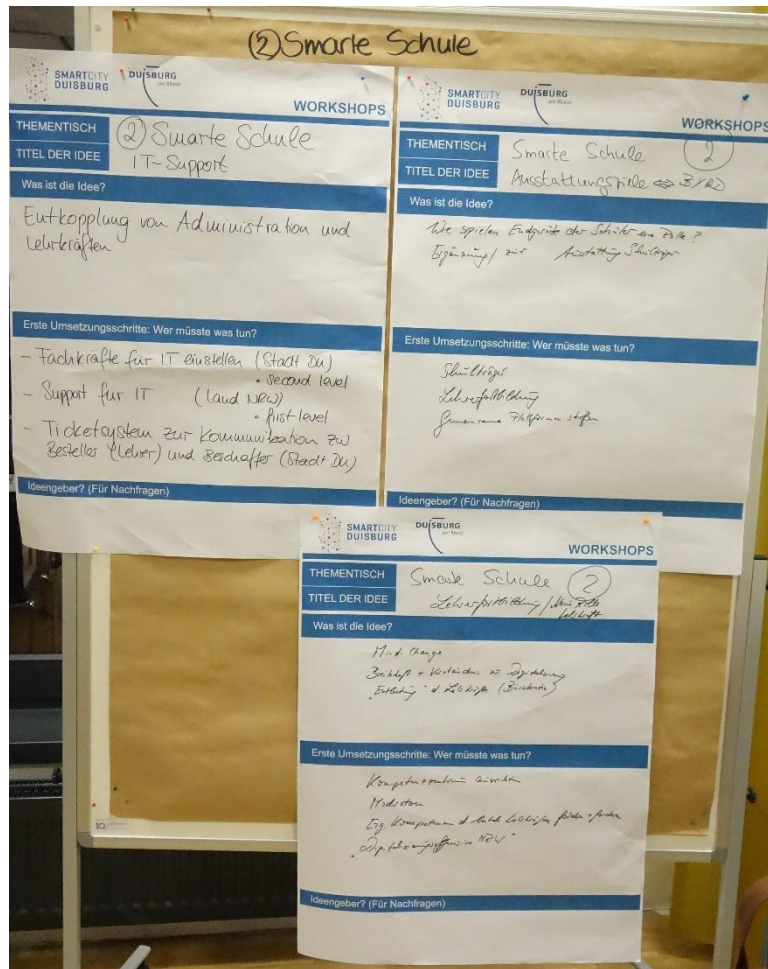 (2) Smarte Schule
SMARTCITY
DUISBURG
DUISBURG
am Rhein
WORKSHOPS
THEMENTISCH
(2) Smarte Schule
TITEL DER IDEE
IT-Support
Was ist die Idee?
Entkopplung von Administration und
Lehrkräften
Erste Umsetzungsschritte: Wer müsste was tun?
- Fachkräfte für IT einstellen (Stadt Du)
• second level
- Support für IT (Land NRW)
• first level
- Ticketsystem zur Kommunikation zw
Besteller (Lehrer) und Beschaffer (Stadt Du)
Ideengeber? (Für Nachfragen)
SMARTCITY
DUISBURG
DUISBURG
am Rhein
WORKSHOPS
THEMENTISCH
Smarte Schule 2
TITEL DER IDEE
Ausstattungsziele ⇔ BYOD
Was ist die Idee?
Wie spielen Endgeräte der Schüler eine Rolle?
Ergänzung / zur Ausstattung Schulträger
Erste Umsetzungsschritte: Wer müsste was tun?
Schulträger
Lehrerfortbildung
Gemeinsame Plattformen schaffen
Ideengeber? (Für Nachfragen)
SMARTCITY
DUISBURG
DUISBURG
am Rhein
WORKSHOPS
THEMENTISCH
Smarte Schule 2
TITEL DER IDEE
Lehrerfortbildung / Neue Rolle
Lehrkraft
Was ist die Idee?
Mind Change
Bereitschaft + Verständnis zu Digitalisierung
"Entlastung" d Lehrkräfte (Bürokratie)
Erste Umsetzungsschritte: Wer müsste was tun?
Kompetenzzentrum einrichten
Moderatoren
Kompetenzen d Lehrkräfte fördern + fordern
"Digitalisierungsoffensive NRW"
Ideengeber? (Für Nachfragen)